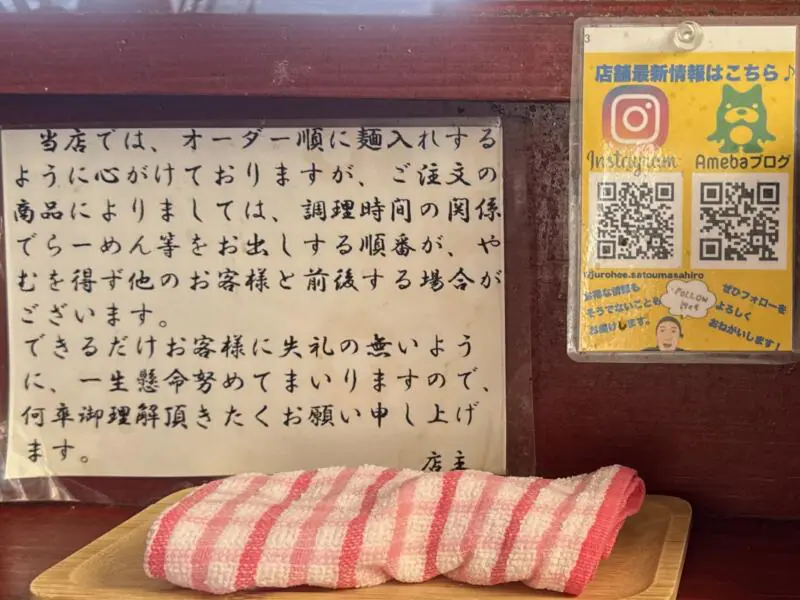 当店では、オーダー順に麺入れする
ように心がけておりますが、ご注文の
商品によりましては、調理時間の関係
でらーめん等をお出しする順番が、や
むを得ず他のお客様と前後する場合が
ございます。
できるだけお客様に失礼の無いよう
に、一生懸命努めてまいりますので、
何卒御理解頂きたくお願い申し上げ
ます。
店主
3
店舗最新情報はこちら♪
Instagram
Amebaブログ
jurohee.satoumasahiro
お得な情報も
そうでないことも
お届けします。
FOLLOW
ME!
ぜひフォローを
よろしく
おねがいします!